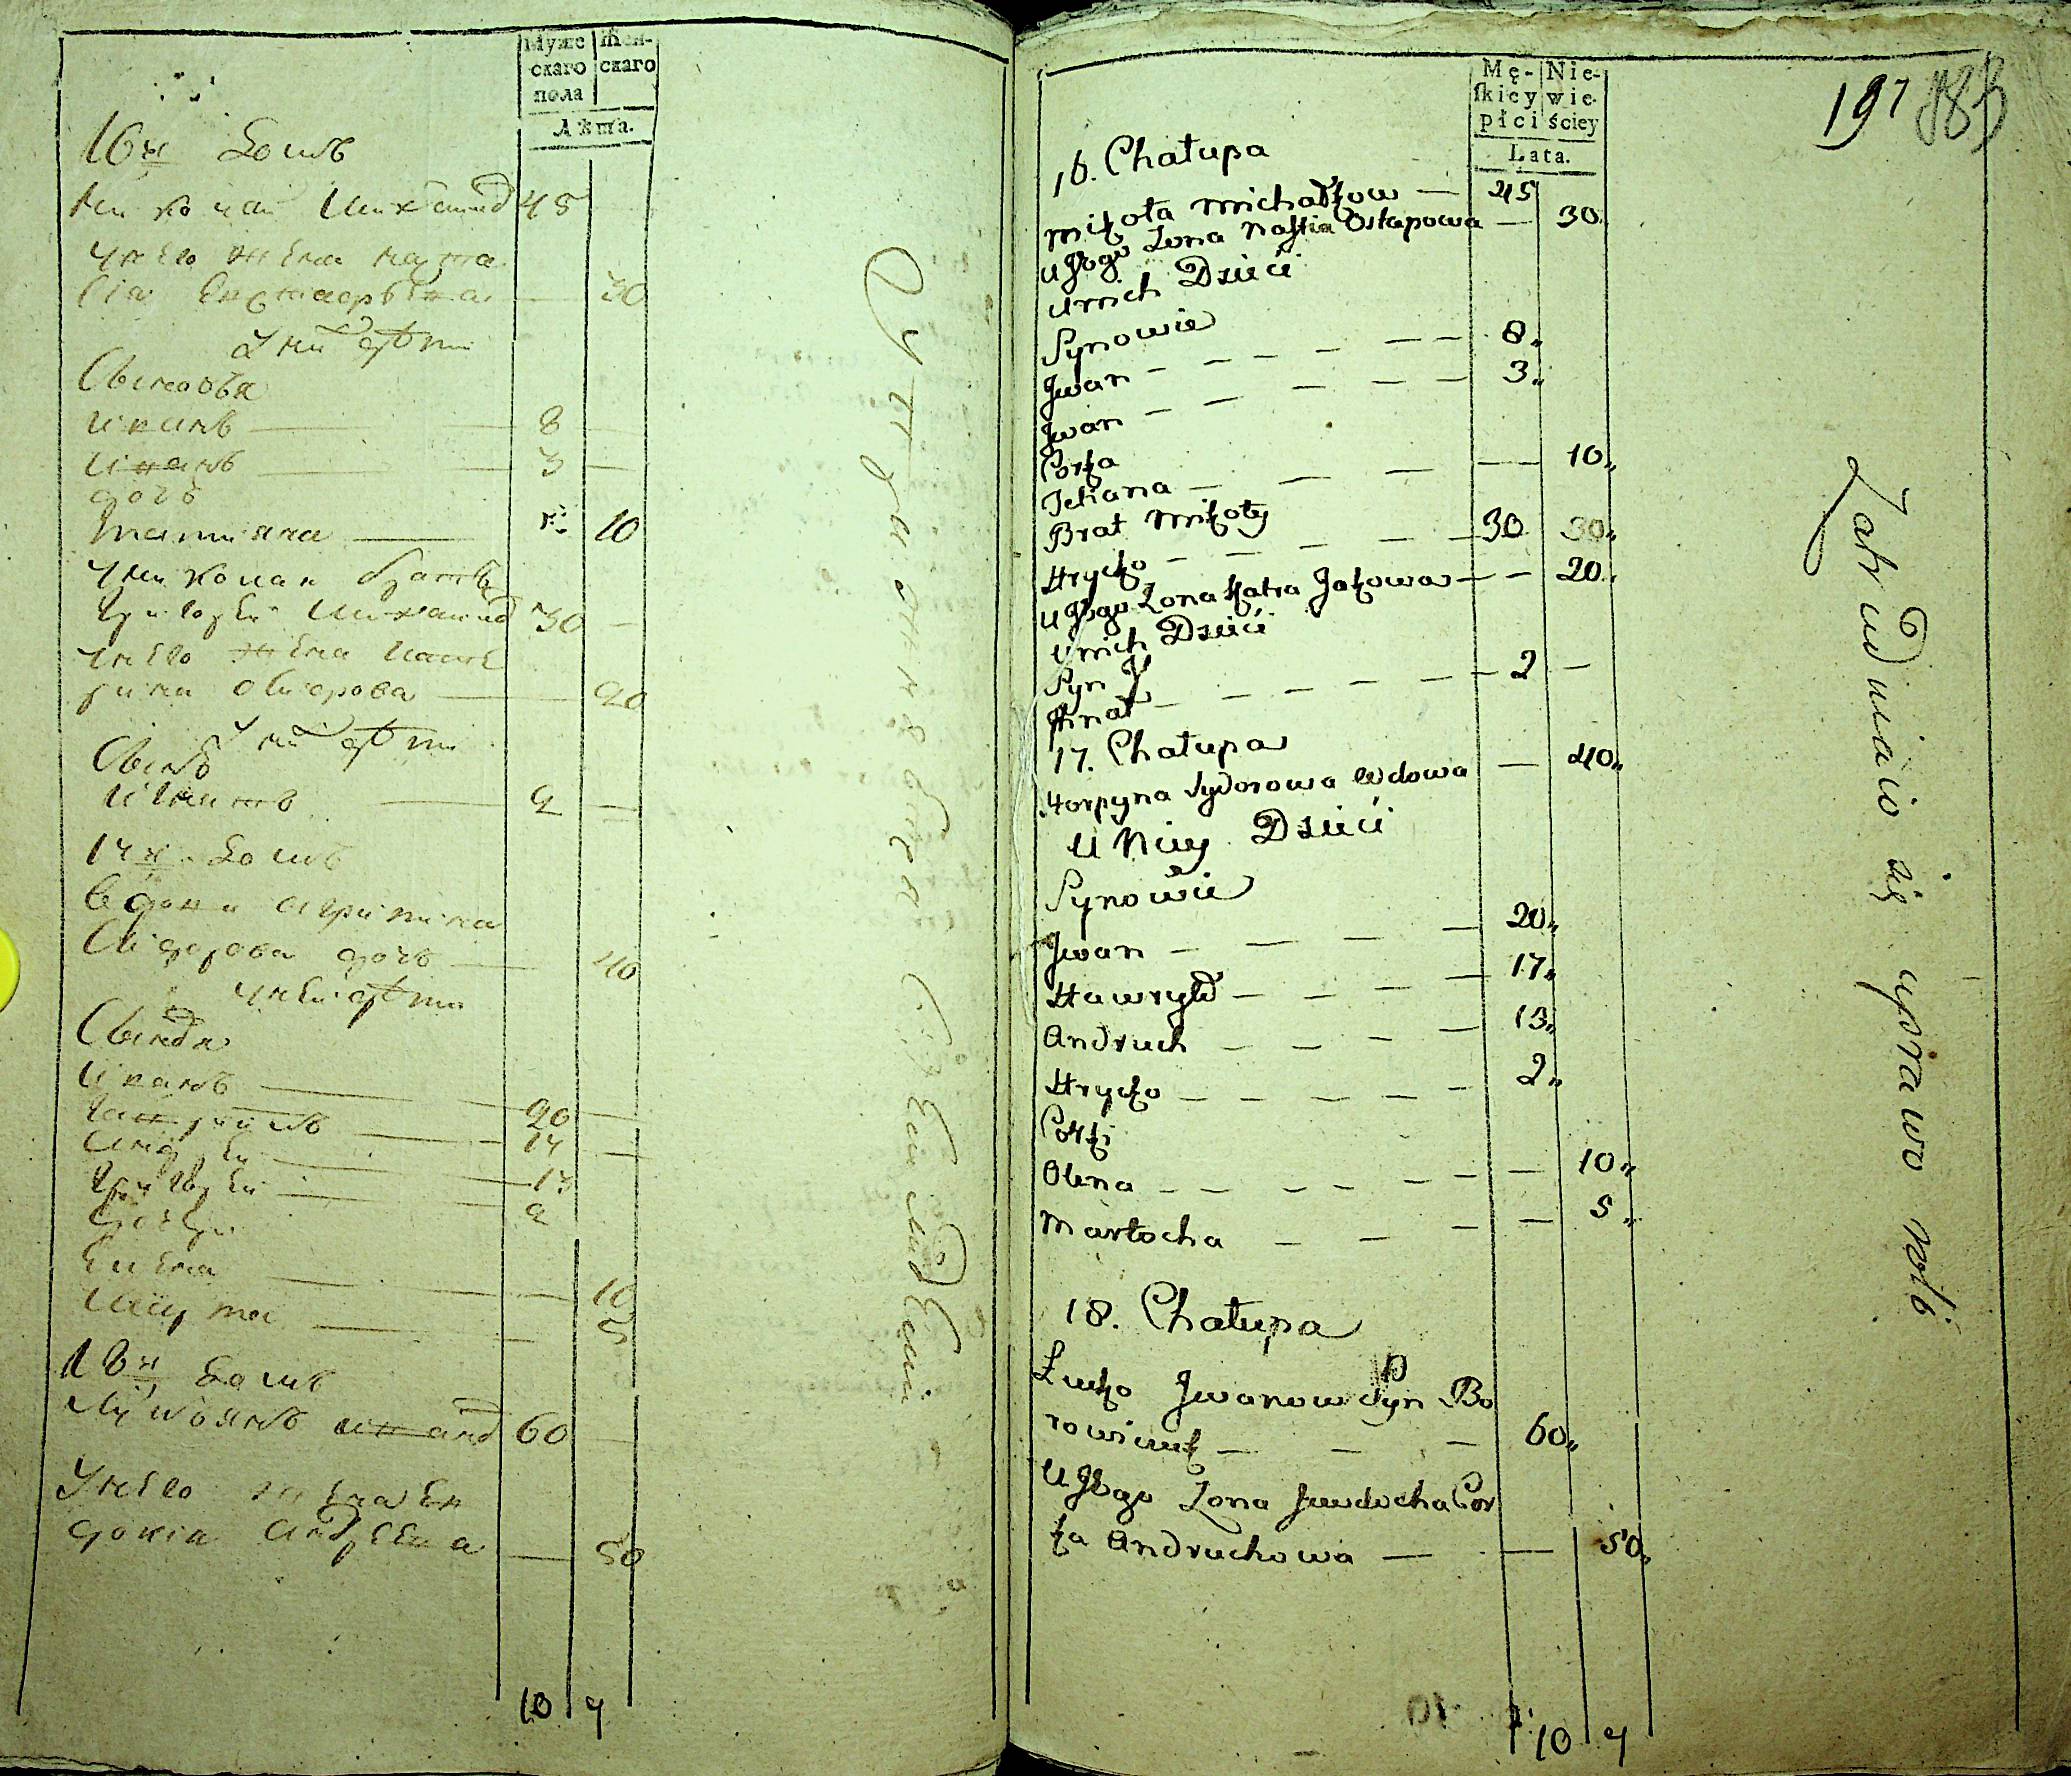 Муже
скаго
пола
Жен-
скаго
Лѣта.
16й Домъ
Николай Михайлов 45
У него жена Ната
сія Евстафьева — 30
У них дѣти
Сыновья
Иванъ — 8 —
Иванъ — 3 —
дочь
Татияна — 10
У Николая братъ
Григорей Михайлов 30 —
У него жена Кате
рина — 20
У них дѣти
Сынъ
Игнатъ — 2 —
17й Домъ
Вдова Агрипина
Сидорова дочь — 40
У ней дѣти
Сыновья
Иванъ — 20 —
Гавриилъ — 17 —
Андрей — 13
Григорей — 2
Дочери
Елена — 10
— 5
18й Домъ
Лукьянъ Иванов 60 —
У него жена Ев
докія Андреева — 50
10 7
Упражняются
197 183
Mę-
skiey
płci
Nie-
wie-
ściey
Lata.
16. Chałupa
Mikoła Michałkow — 45
U Jego Zona Nastia Ostapowa — 30.
U nich Dzieci
Synowie
Jwan — — — — — — 8„
Jwan — — — — — — 3„
Corka
Tetiana — — — — — 10„
Brat Mikoły
Hrycko — — — — — 30 30„
U Jego Zona Katra Jakowa — — 20„
U nich Dzieci
Syn J
Hnat — — — — — — 2 —
17. Chałupa
Horpyna Sydorowa wdowa — 40„
U Niey Dzieci
Synowie
Jwan — — — — 20„
Hawryło — — — — — 17„
Andruch — — — — 13„
Hrycko — — — — — — 2„
Corki
Olena — — — — — — — 10„
Martocha — — — — 5„
18. Chałupa
Łucko Jwanow Syn Bo
rowiczuk — — — 60„
U Jego Zona Jewdocha Cor
ka Andruchowa — — 50„
10 7
Zatrudniaio się uprawo roli.